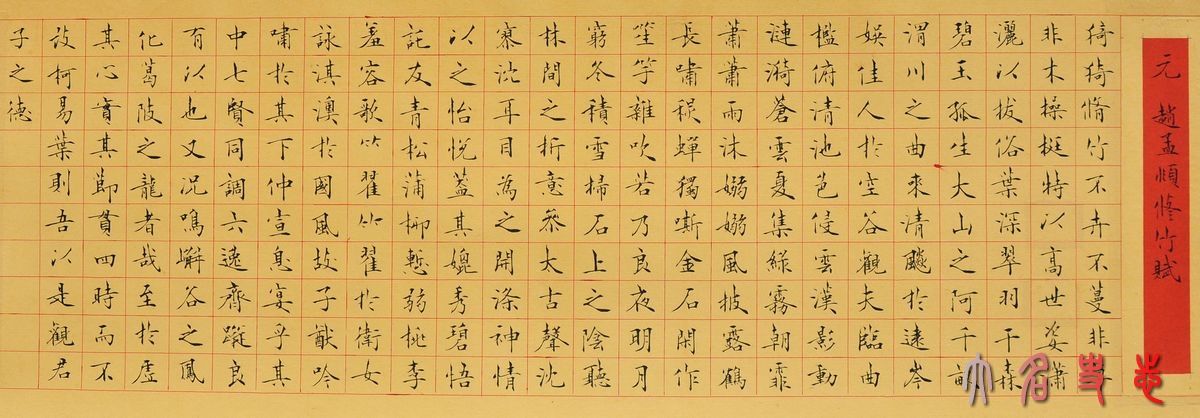 元 趙孟頫修竹賦
猗猗脩竹不卉不蔓非
非木操挺特以高世姿瀟
灑以拔俗葉深翠羽干森
碧玉孤生大山之阿千畝
渭川之曲來清飈於遠岑
娛佳人於空谷觀夫臨曲
檻俯清池色侵雲漢影動
漣漪蒼雲夏集綠霧朝霏
蕭蕭雨沐嫋嫋風披露鶴
長嘯秋蟬獨嘶金石閒作
笙竽雜吹若乃良夜明月
窮冬積雪掃石上之陰聽
林間之折意參太古聲沈
寥泬耳目為之開滌神情
以之怡悅蓋其媲秀碧梧
託友青松蒲柳慙弱桃李
羞容歌籊籊於衛女
詠淇澳於國風故子猷吟
嘯於其下仲宣息宴乎其
中七賢同調六逸齊蹤良
有以也又況鳴嶰谷之鳳
化葛陂之龍者哉至於虛
其心實其節貫四時而不
改柯易葉則吾以是觀君
子之德